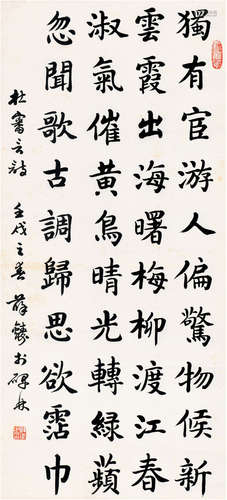 獨有宦游人偏驚物候新
雲霞出海曙梅柳渡江春
淑氣催黃鳥晴光轉綠蘋
忽聞歌古調歸思欲霑巾
杜審言詩 壬戌之春 薛鑄 於碑林